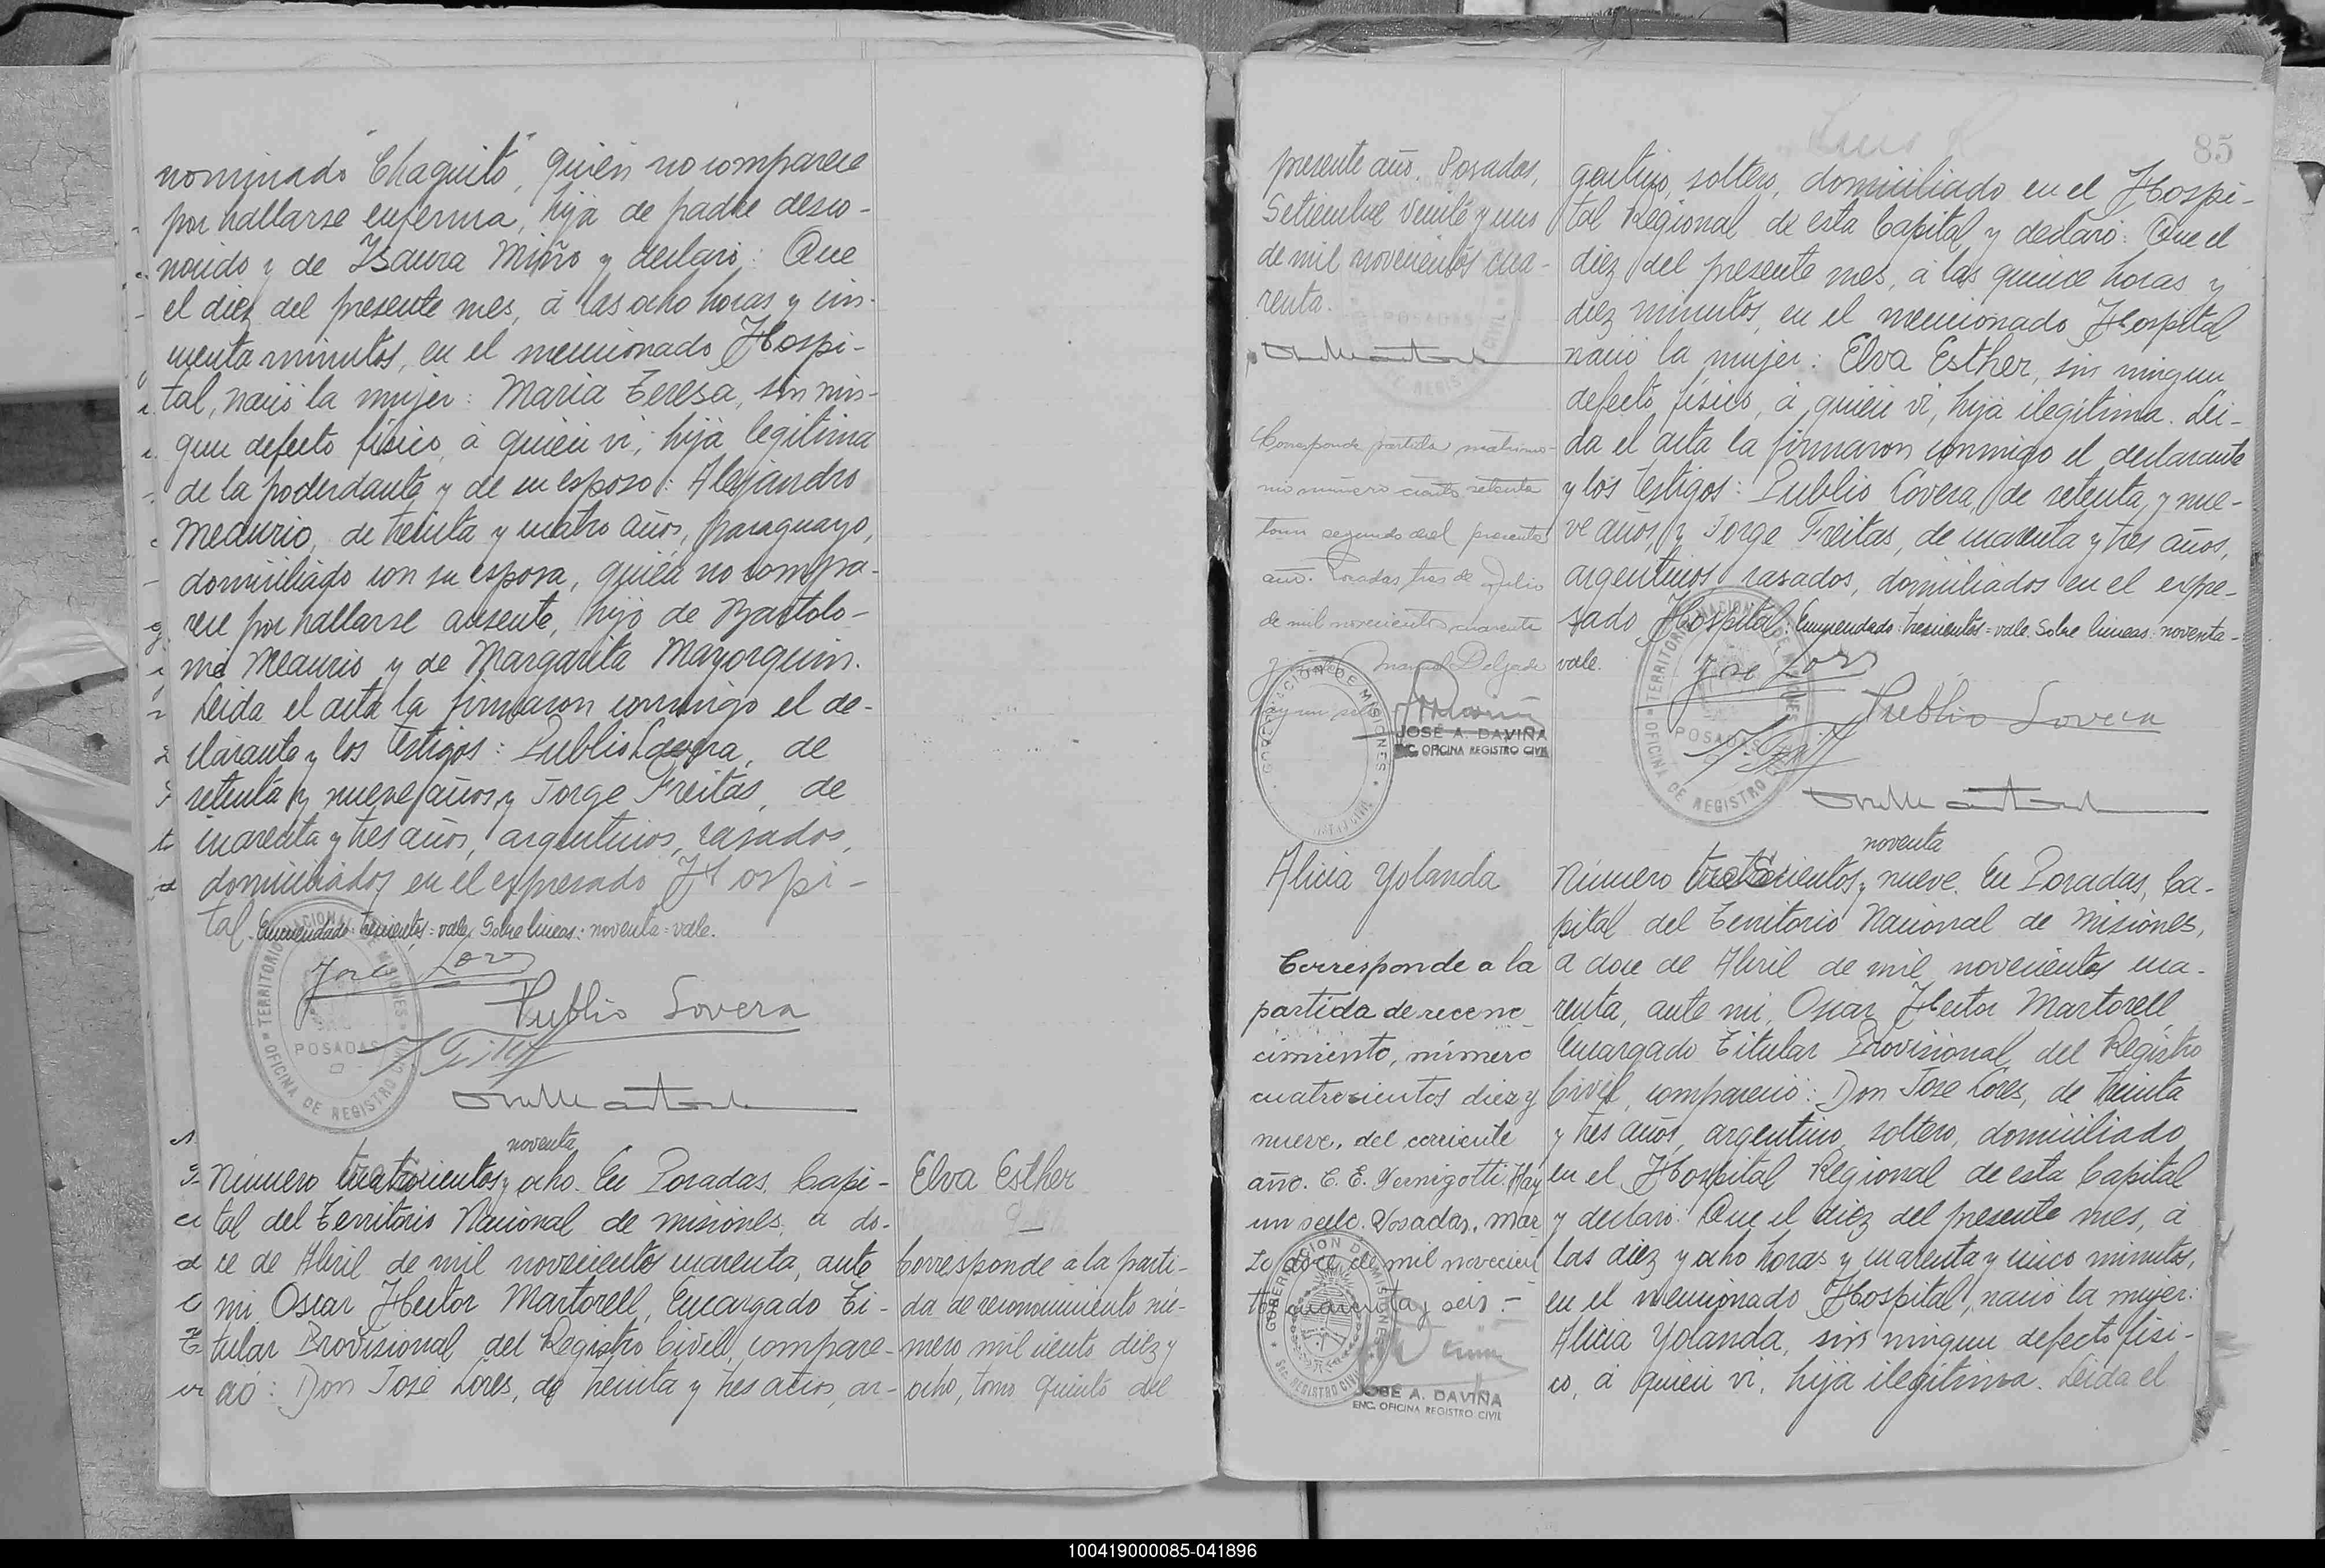 nominado "Chaquito", quien no comparece
por hallarse enferma, hija de padre desco-
nocido y de Isaura Miño y declaró: Que
el diez del presente mes, á las ocho horas y cin-
cuenta minutos, en el mencionado Hospi-
tal, nació la mujer: Maria Teresa, sin nin-
gun defecto físico, á quien vi, hija legitima
de la poderdante y de su esposo: Alejandro
Meaurio, de treinta y cuatro años, paraguayo,
domiciliado con su esposa, quien no compa-
rece por hallarse ausente, hijo de Bartolo-
mé Meaurio y de Margarita Mayorquin.
Leida el acta la firmaron conmigo el de-
clarante y los testigos: Publio Lovera, de
setenta y nueve años, y Jorge Freitas, de
cuarenta y tres años, argentinos, casados,
domiciliados en el expresado Hospi-
tal. Enmendado: trescientos = vale. Sobre lineas: noventa = vale.
Jose Lores
Publio Lovera
TERRITORIO NACIONAL DE MISIONES
POSADAS
OFICINA DE REGISTRO CIVIL
noventa
Número trescientos y ocho. En Posadas, Capi-
tal del Territorio Nacional de Misiones, a do-
ce de Abril de mil novecientos cuarenta, ante
mi, Oscar Hector Martorell, Encargado Ti-
tular Provisional del Registro Civil, compare-
ció: Don José Lores, de treinta y tres años, ar-
Elva Esther
Corresponde á la parti-
da de reconocimiento nú-
mero mil ciento diez y
ocho, tomo quinto del
85
presente año. Posadas,
Setiembre veinte y uno
de mil novecientos cua-
renta.
Corresponde partida matrimo-
nio número ciento setenta
tomo segundo del presente
año. Posadas, tres de Julio
de mil novecientos cuarenta
Manuel Delgado
Hay un sello
GOBERNACION DE MISIONES
JOSÉ A. DAVIÑA
ENC. OFICINA REGISTRO CIVIL
gentino, soltero, domiciliado en el Hospi-
tal Regional de esta Capital y declaró: Que el
diez del presente mes, á las quince horas y
diez minutos, en el mencionado Hospital
nació la mujer: Elva Esther, sin ningun
defecto físico, á quien vi, hija ilegitima. Lei-
da el acta la firmaron conmigo el declarante
y los testigos: Publio Lovera, de setenta y nue-
ve años, y Jorge Freitas, de cuarenta y tres años,
argentinos, casados, domiciliados en el expre-
sado Hospital. Enmendado: trescientos = vale. Sobre lineas: noventa =
vale.
Jose Lores
Publio Lovera
TERRITORIO NACIONAL DE MISIONES
POSADAS
OFICINA DE REGISTRO CIVIL
Alicia Yolanda
Corresponde a la
partida de recono
cimiento, número
cuatrocientos diez y
nueve, del corriente
año. C. E. Vernigotti. Hay
un sello. Posadas, mar
zo doce de mil novecien
tos cuarenta y seis.-
GOBERNACION DE MISIONES
REGISTRO CIVIL
JOSÉ A. DAVIÑA
ENC. OFICINA REGISTRO CIVIL
noventa
Número trescientos y nueve. En Posadas, Ca-
pital del Territorio Nacional de Misiones,
a doce de Abril de mil novecientos cua-
renta, ante mi, Oscar Hector Martorell
Encargado Titular Provisional del Registro
Civil, compareció: Don Jose Lores, de treinta
y tres años, argentino, soltero, domiciliado
en el Hospital Regional de esta Capital
y declaró: Que el diez del presente mes, á
las diez y ocho horas y cuarenta y cinco minutos,
en el mencionado Hospital, nació la mujer:
Alicia Yolanda, sin ningun defecto físi-
co, á quien vi, hija ilegitima. Leida el
100419000085-041896